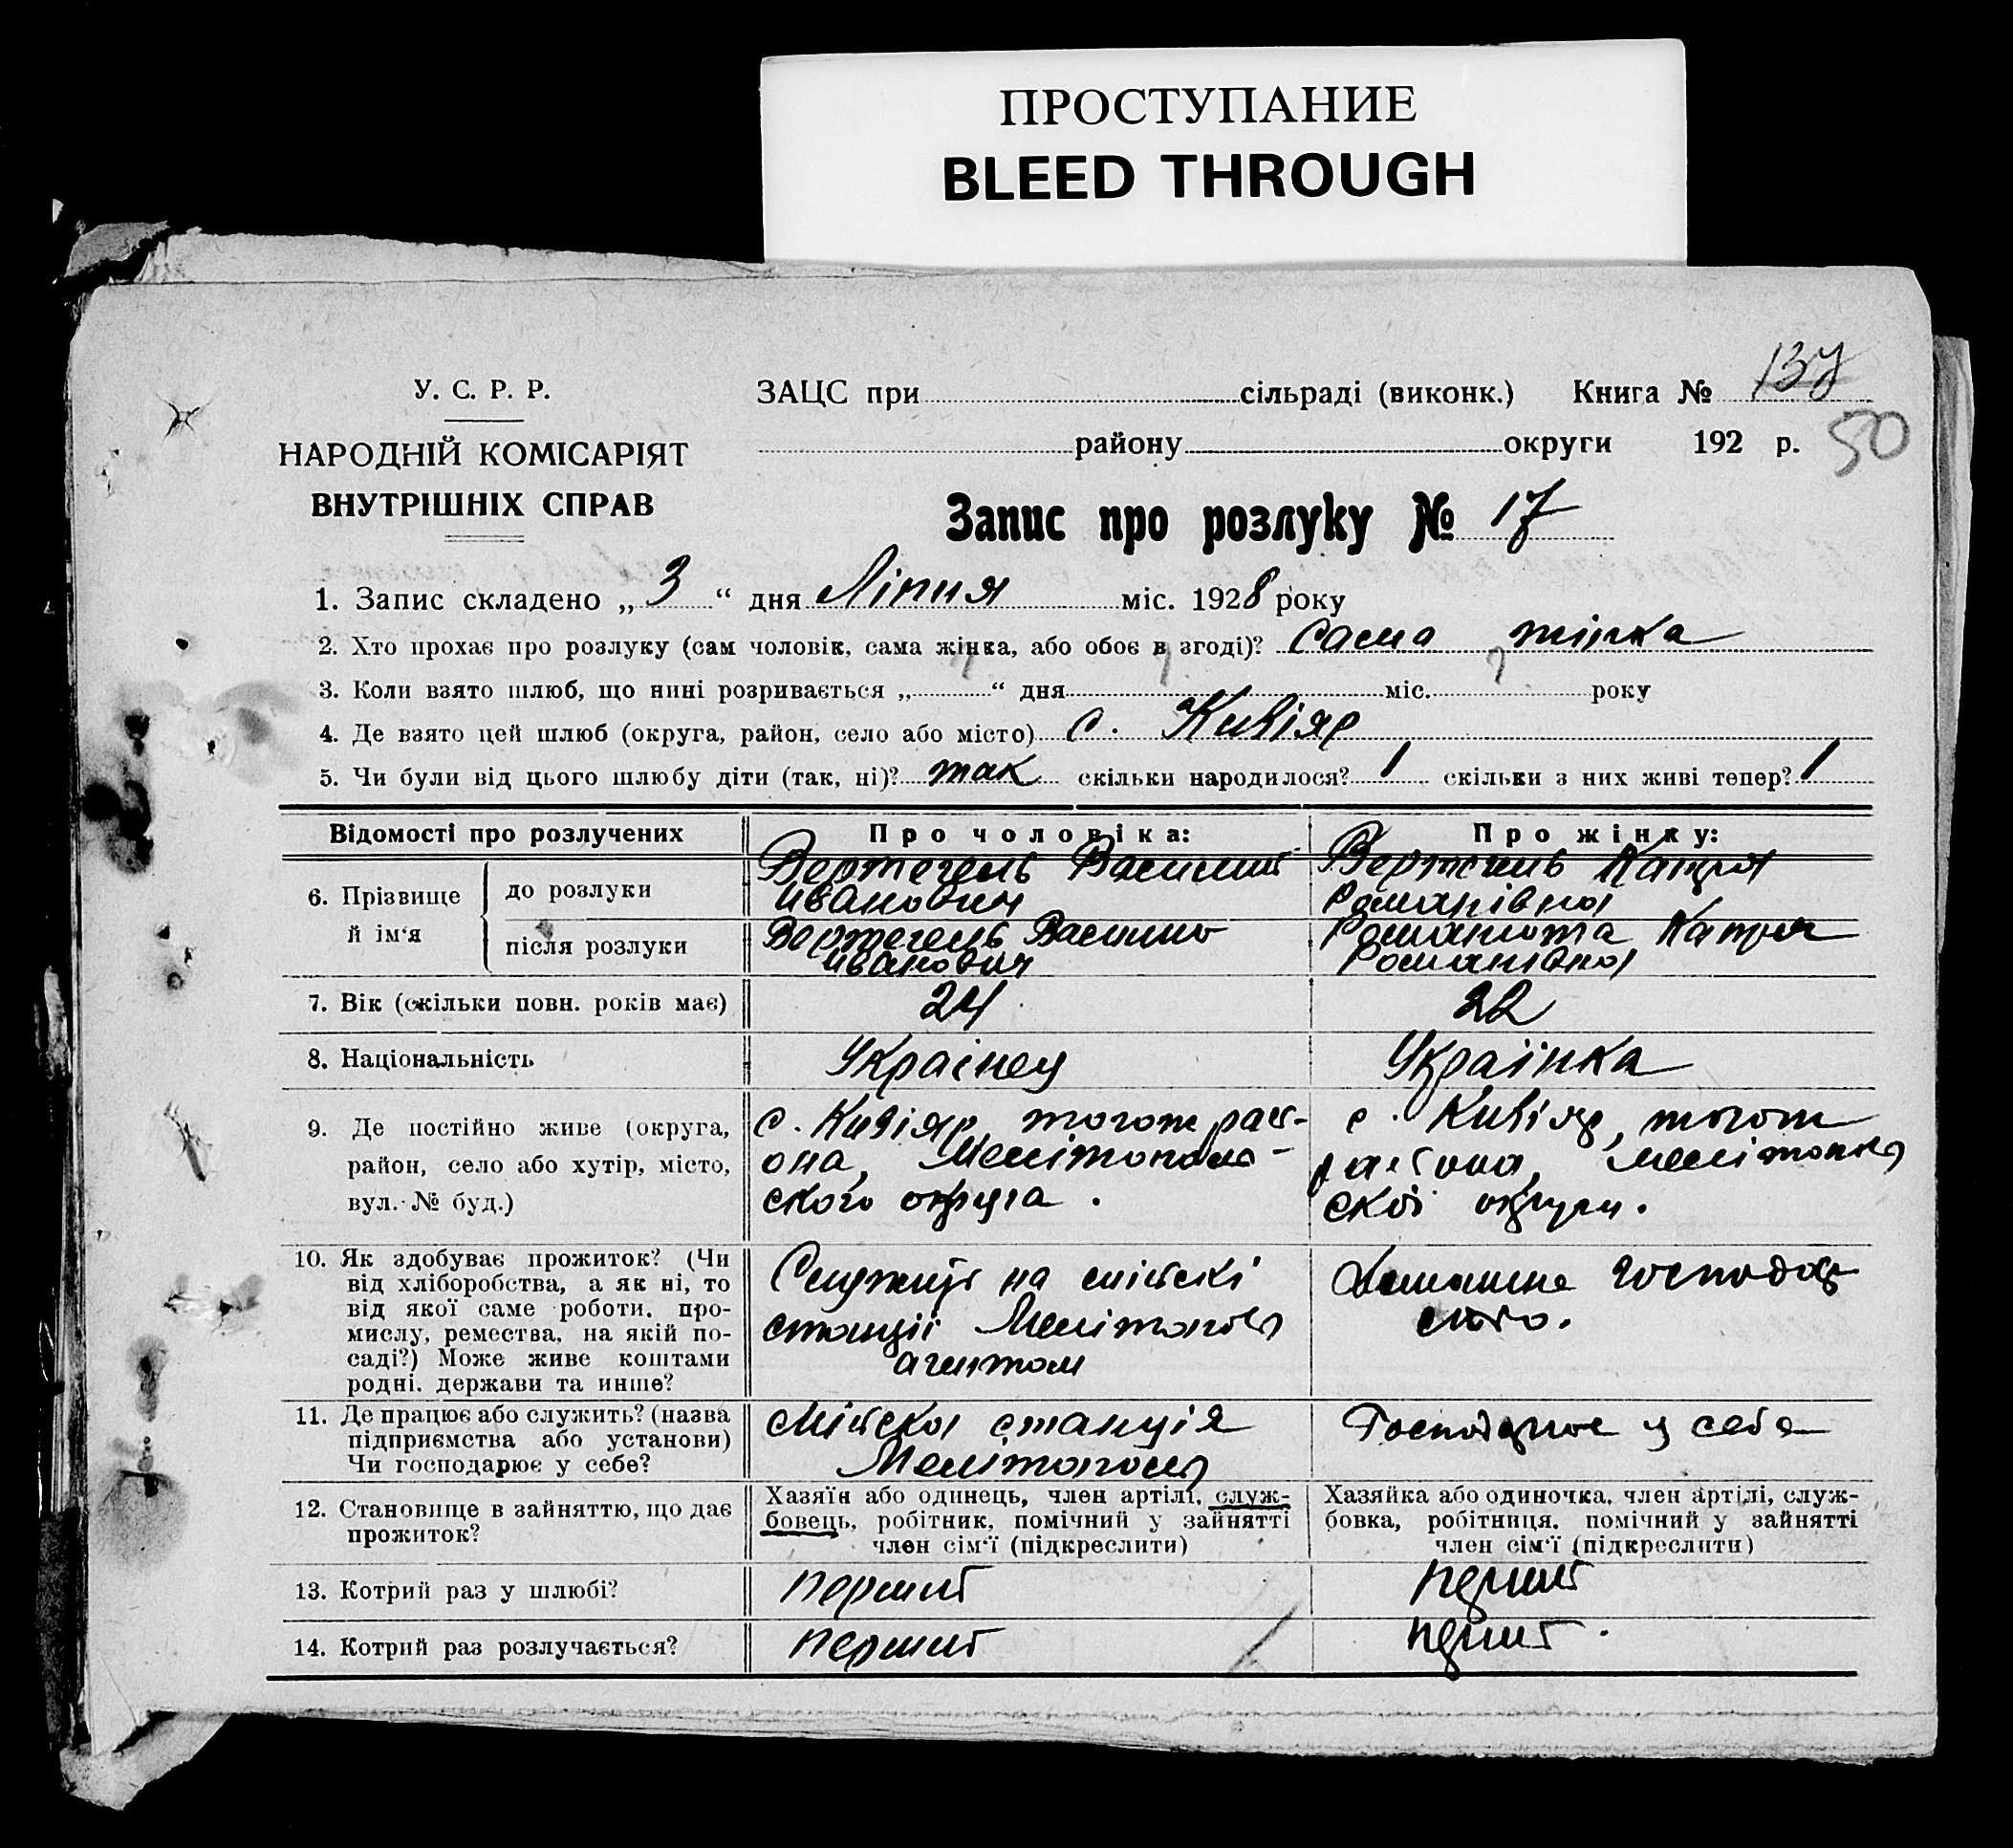 ПРОСТУПАНИЕ
BLEED THROUGH
У. С. Р. Р.
НАРОДНІЙ КОМІСАРІЯТ
ВНУТРІШНІХ СПРАВ
ЗАЦС при сільраді (виконк.) Книга №
району округи 192 р. 50
Запис про розлуку № 17
1. Запис складено „ 3 “ дня Ліпня міс. 1928 року
2. Хто прохає про розлуку (сам чоловік, сама жінка, або обоє в згоді)? Сама жінка
3. Коли взято шлюб, що нині розривається „ ? “ дня ? міс. ? року
4. Де взято цей шлюб (округа, район, село або місто) с. Кизіяр
5. Чи були від цього шлюбу діти (так, ні)? так скільки народилося? 1 скільки з них живі тепер? 1
Відомості про розлучених Про чоловіка: Про жінку:
6. Прізвище й ім‘я
до розлуки Вертегель Василий Иванович Вертегель Катря Романівна
після розлуки Вертегель Василь Иванович Катря Романівна
7. Вік (скільки повн. років має) 24 22
8. Національність Украінец Украінка
9. Де постійно живе (округа, с. Кизіяр, тогож рай- с. Кизіяр, тогож
район, село або хутір, місто, она, Мелітополь- района, Мелітополь
вул. № буд.) ского округа. скоі округи.
10. Як здобуває прожиток? (Чи
від хліборобства, а як ні, то Служить на міські Домашне господар
від якої саме роботи, про-
мислу, ремества, на якій по- станціі Мелітополь ство.
саді?) Може живе коштами агентом
родні, держави та инше?
11. Де працює або служить? (назва Міска станція Господарює у себе
підприємства або установи)
Чи господарює у себе? Мелітополь
12. Становище в зайняттю, що дає Хазяїн або одинець, член артілі, служ- Хазяйка або одиночка, член артілі, служ-
прожиток? бовець, робітник, помічний у зайнятті бовка, робітниця, помічний у зайнятті
член сім‘ї (підкреслити) член сім‘ї (підкреслити)
13. Котрий раз у шлюбі? перший перший
14. Котрий раз розлучається? перший перший.